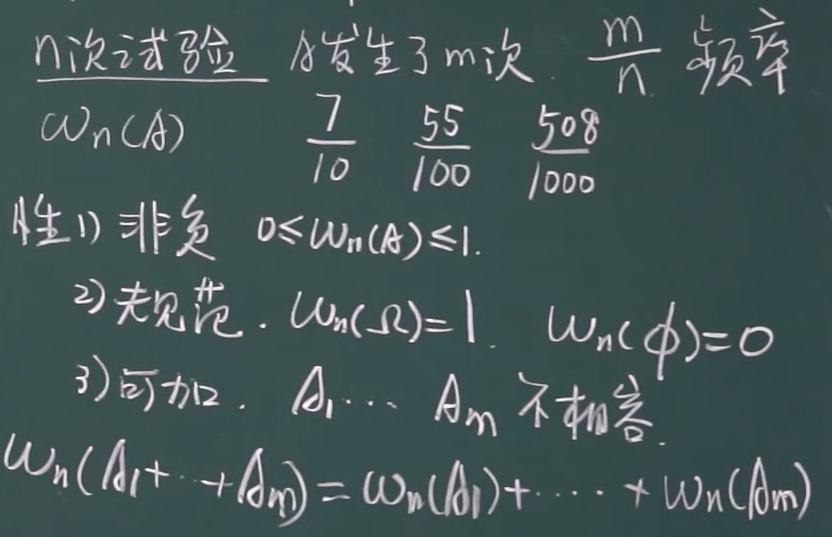 n次试验 A发生了m次. m/n 频率
ωn(A) 7/10 55/100 508/1000
性1) 非负 0≤ωn(A)≤1.
2) 规范. ωn(Ω)=1. ωn(ϕ)=0
3) 可加. A1… Am 不相容.
ωn(A1+…+Am)=ωn(A1)+……+ωn(Am)